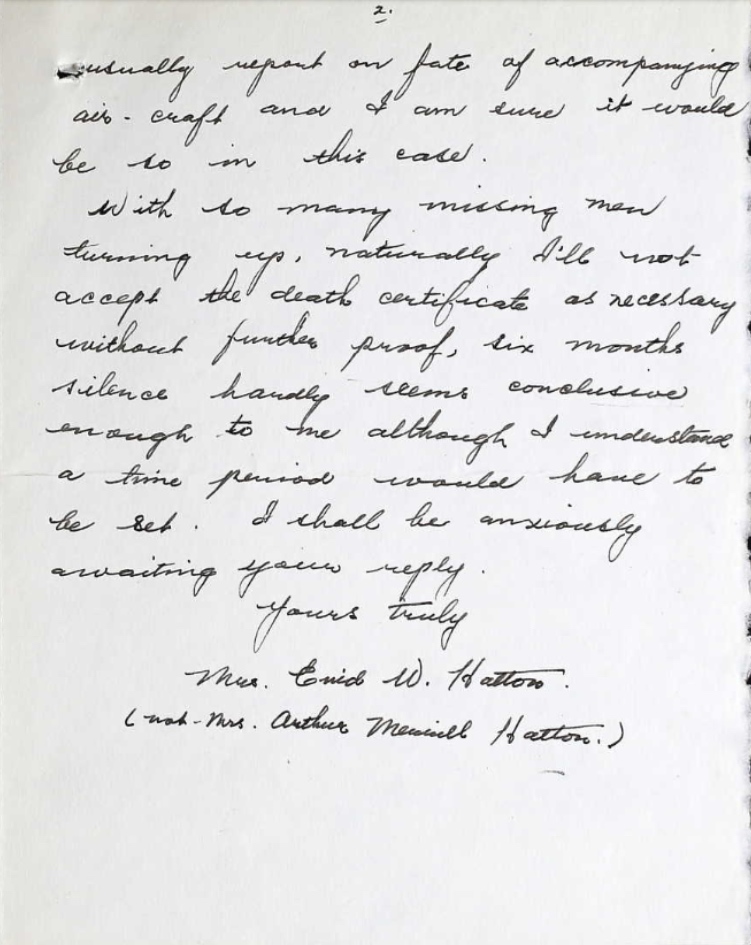 2.
usually report on fate of accompanying
air-craft and I am sure it would
be so in this case.
With so many missing men
turning up, naturally I'll not
accept the death certificate as necessary
without further proof, six months
silence hardly seems conclusive
enough to me although I understand
a time period would have to
be set. I shall be anxiously
awaiting your reply.
Yours truly
Mrs. Enid W. Hatton.
(not-Mrs. Arthur Merrill Hatton.)